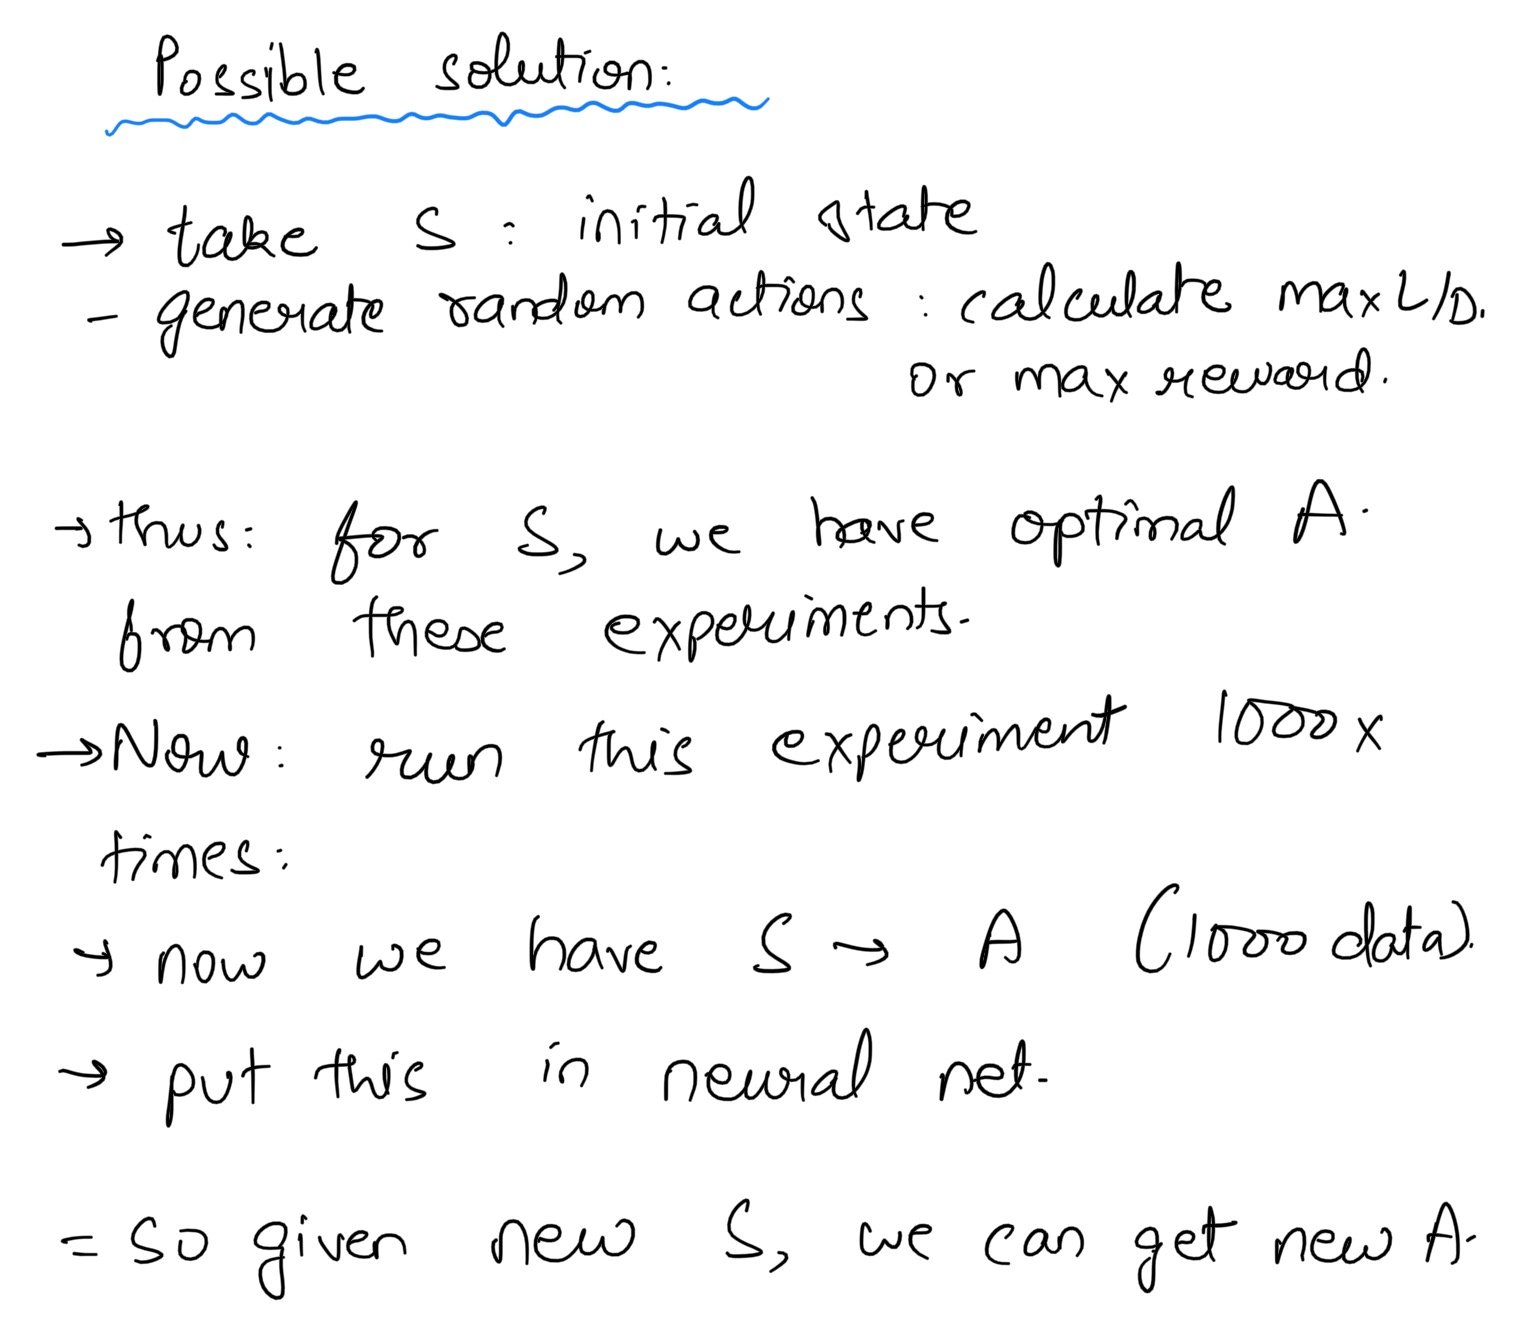 Possible solution:
→ take S : initial state
- generate random actions : calculate max L/D.
or max reward.
→ thus: for S, we have optimal A.
from these experiments.
→ Now: run this experiment 1000 x
times:
→ now we have S → A (1000 data).
→ put this in neural net.
= so given new S, we can get new A.